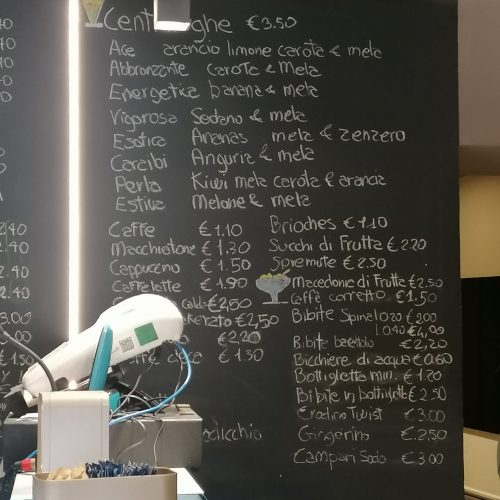 €3.50
Ace arancio limone carota & mela
Abbronzante carota & Mela
Energetica banana & mela
Vigorosa Sedano & mela
Esotica Ananas mela & zenzero
Caraibi Anguria & mela
Perla Kiwi mela carota & arancia
Estiva Melone & mela
Caffe €1.10
Macchiatone €1.30
Cappuccino €1.50
Caffelatte €1.90
€2,50
€2,50
€2,20
€1.30
Brioches €1.10
Succhi di Frutta €2.20
Spremute €2.50
Macedonie di Frutta €2.50
Caffè corretto €1,50
Bibite Spina
€4,00
Bibite €2,20
Bicchiere di acqua €0.60
Bottiglietta min. €1.20
Bibite in bottiglietta €2,50
Twist €3.00
Gingerino €.2.50
Campari Soda €.3.00
2,40
2.40
2.40
2.40
3,00
3.00
€1.50